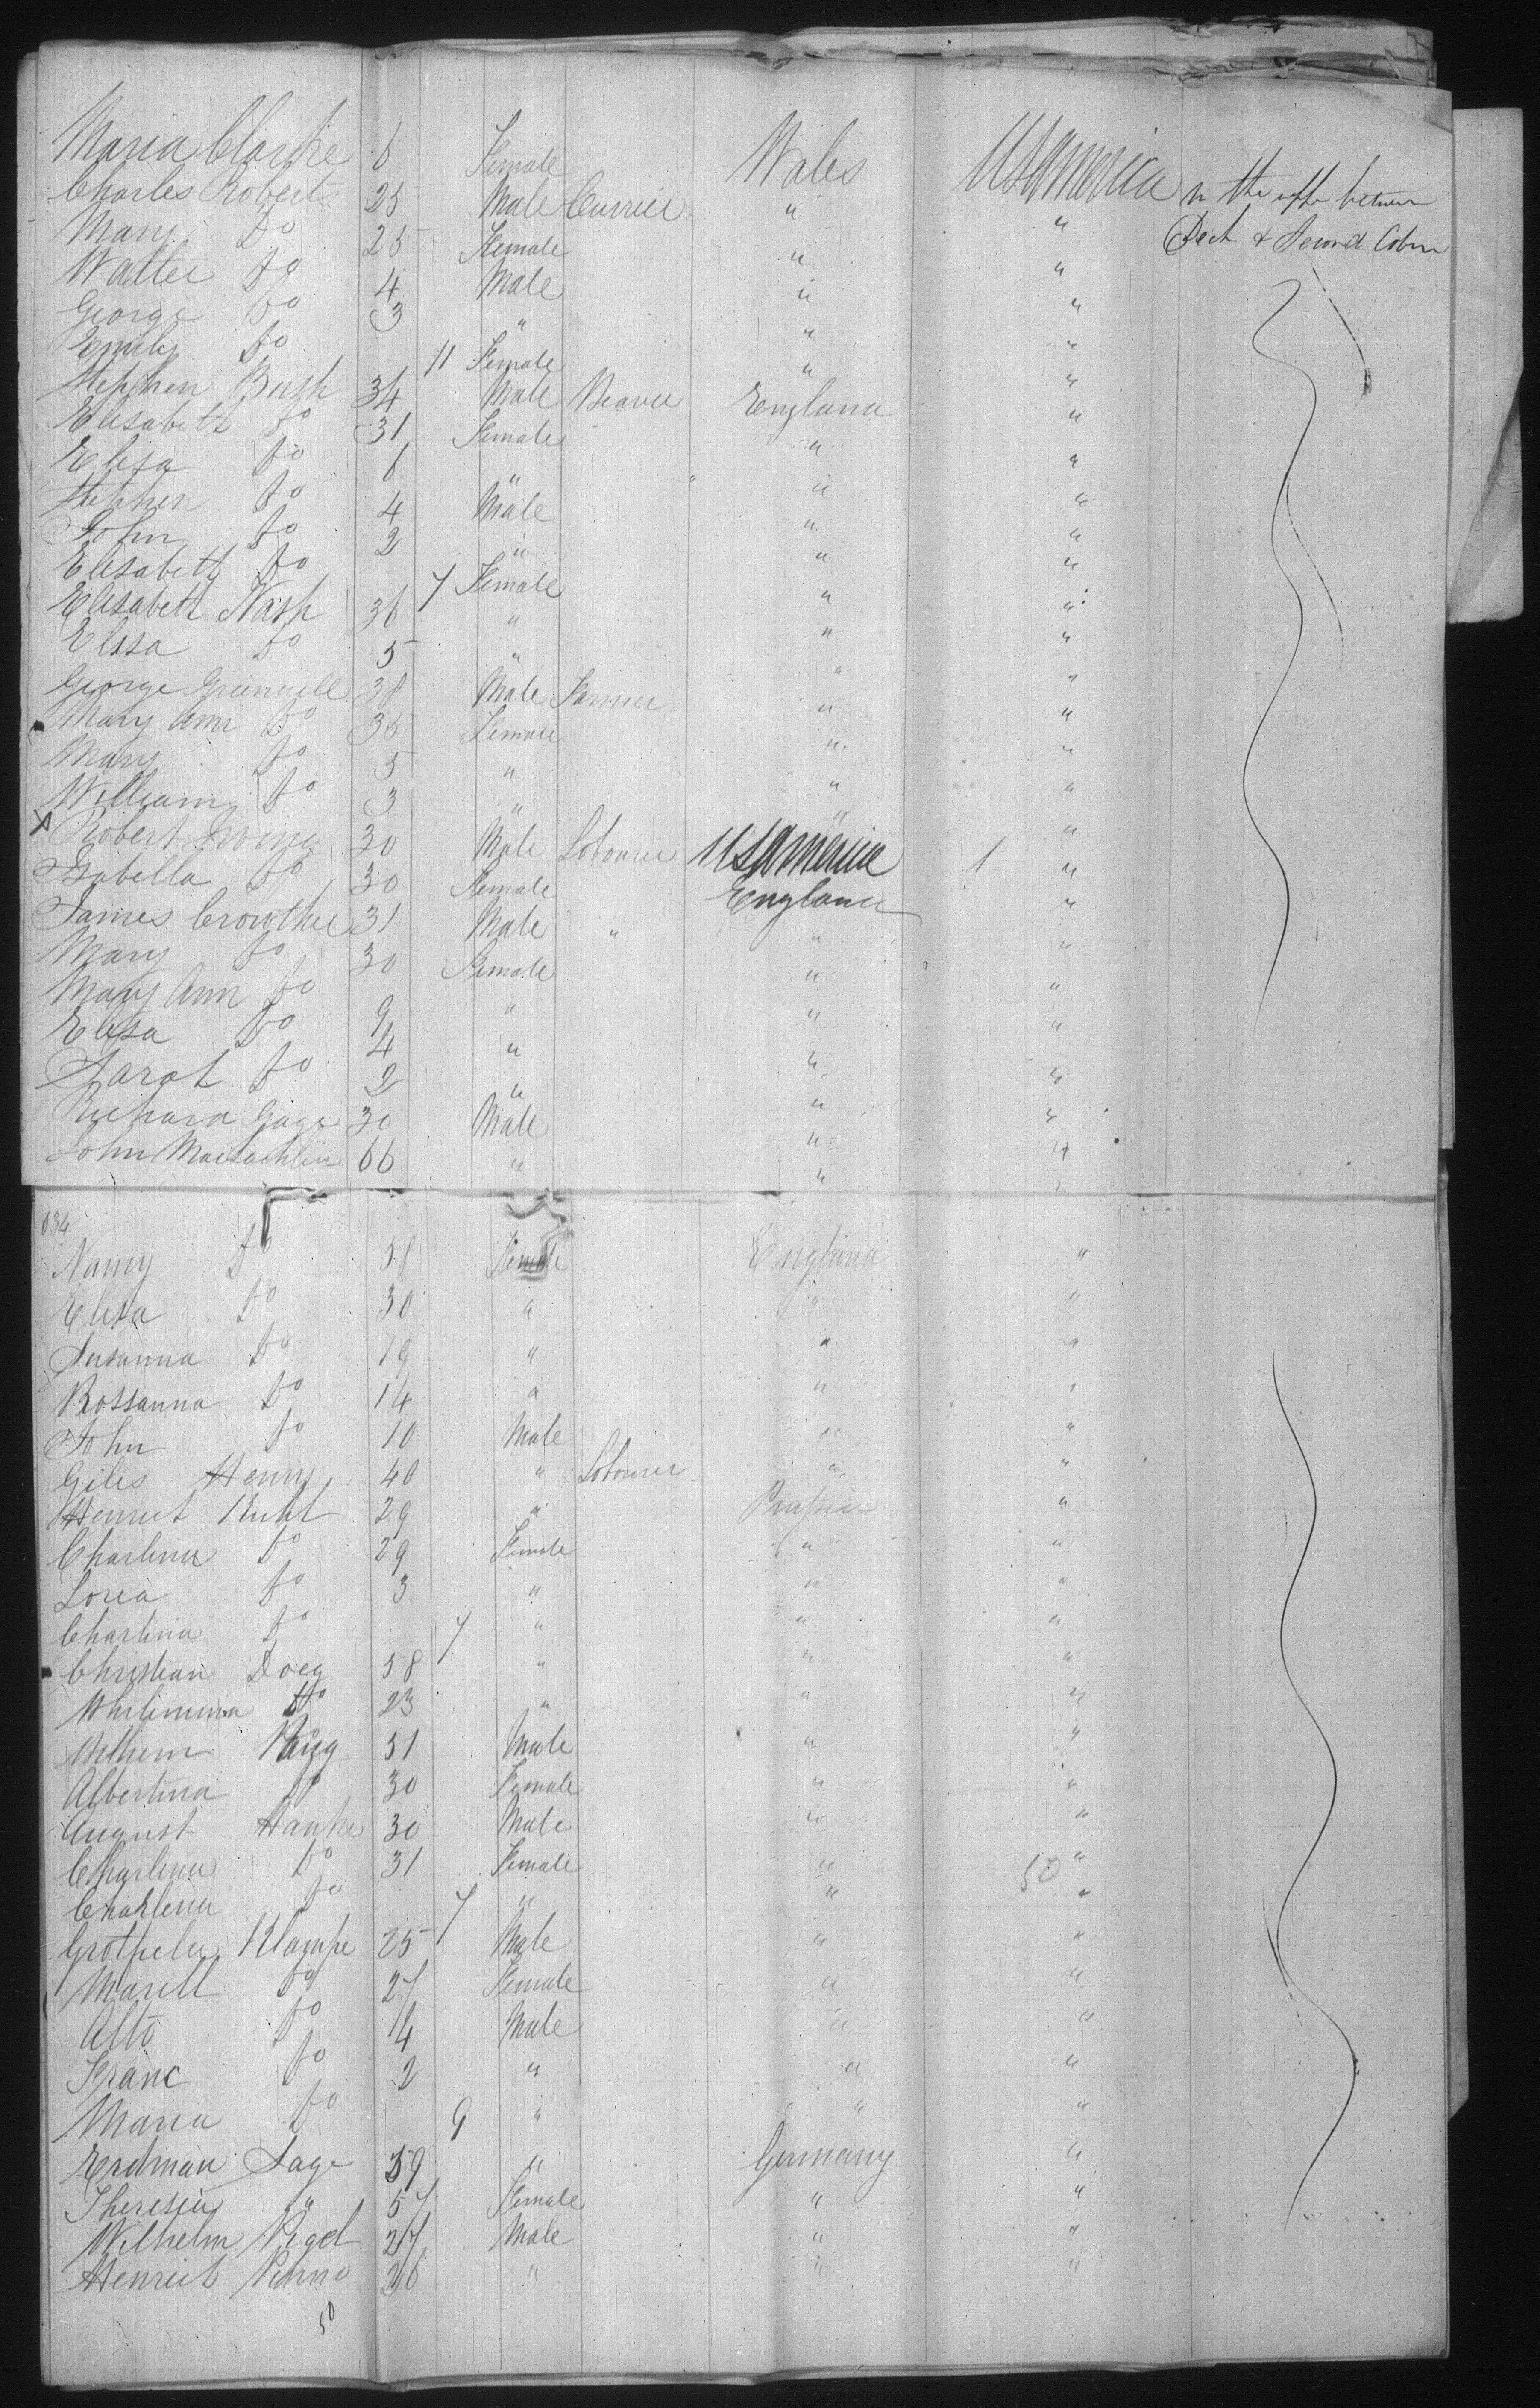 Maria Clarke 6 Female Wales USAmerica In the upper between
Charles Roberts 25 Male Currier " " Deck & Second Cabin
Mary Do 25 Female " "
Walter Do 4 Male " "
George Do 3 " " "
Emily Do 11 Female " "
Stephen Bush 34 Male Weaver England "
Elisabeth Do 31 Female " "
Elisa Do 6 " " "
Stephen Do 4 Male " "
John Do 2 " " "
Elisabeth Do 7 Female " "
Elisabeth Nash 36 " " "
Elisa Do 5 " " "
George 38 Male Farmer " "
Mary Ann Do 35 Female " "
Mary Do 5 " " "
William Do 3 " " "
X Robert Irving 30 Male Labourer USAmerica 1 "
Isabella Do 30 Female England "
James Crowther 31 Male " " "
Mary Do 30 Female " "
Mary Ann Do 9 " " "
Elisa Do 4 " " "
Sarah Do 2 " " "
Richard Gage 30 Male " "
John MacLachlin 66 " " "
634
Nancy Do 58 Female England "
Elisa Do 30 " " "
Susanna Do 19 " " "
Rossanna Do 14 " " "
John Do 10 Male " "
Giles Henry 40 " Labourer " "
Henriet Kuhl 29 " Prussia "
Charlina Do 29 Female " "
Loria Do 3 " " "
Charlina Do 7 " " "
Christian Doeg 58 " " "
Whilimina Do 23 " " "
Wilhem 31 Male " "
Albertina Do 30 Female " "
August Hanke 30 Male " "
Charlina Do 31 Female " 50 "
Charlina Do 7 " " "
Klampe 25 Male " "
Marill Do 27 Female " "
Alto Do 4 Male " "
Franc Do 2 " " "
Maria Do 9 " " "
Erdman Sage 59 " Germany "
Theresia " 57 Female " "
Wilhelm 27 Male " "
Henrich 26 " " "
50